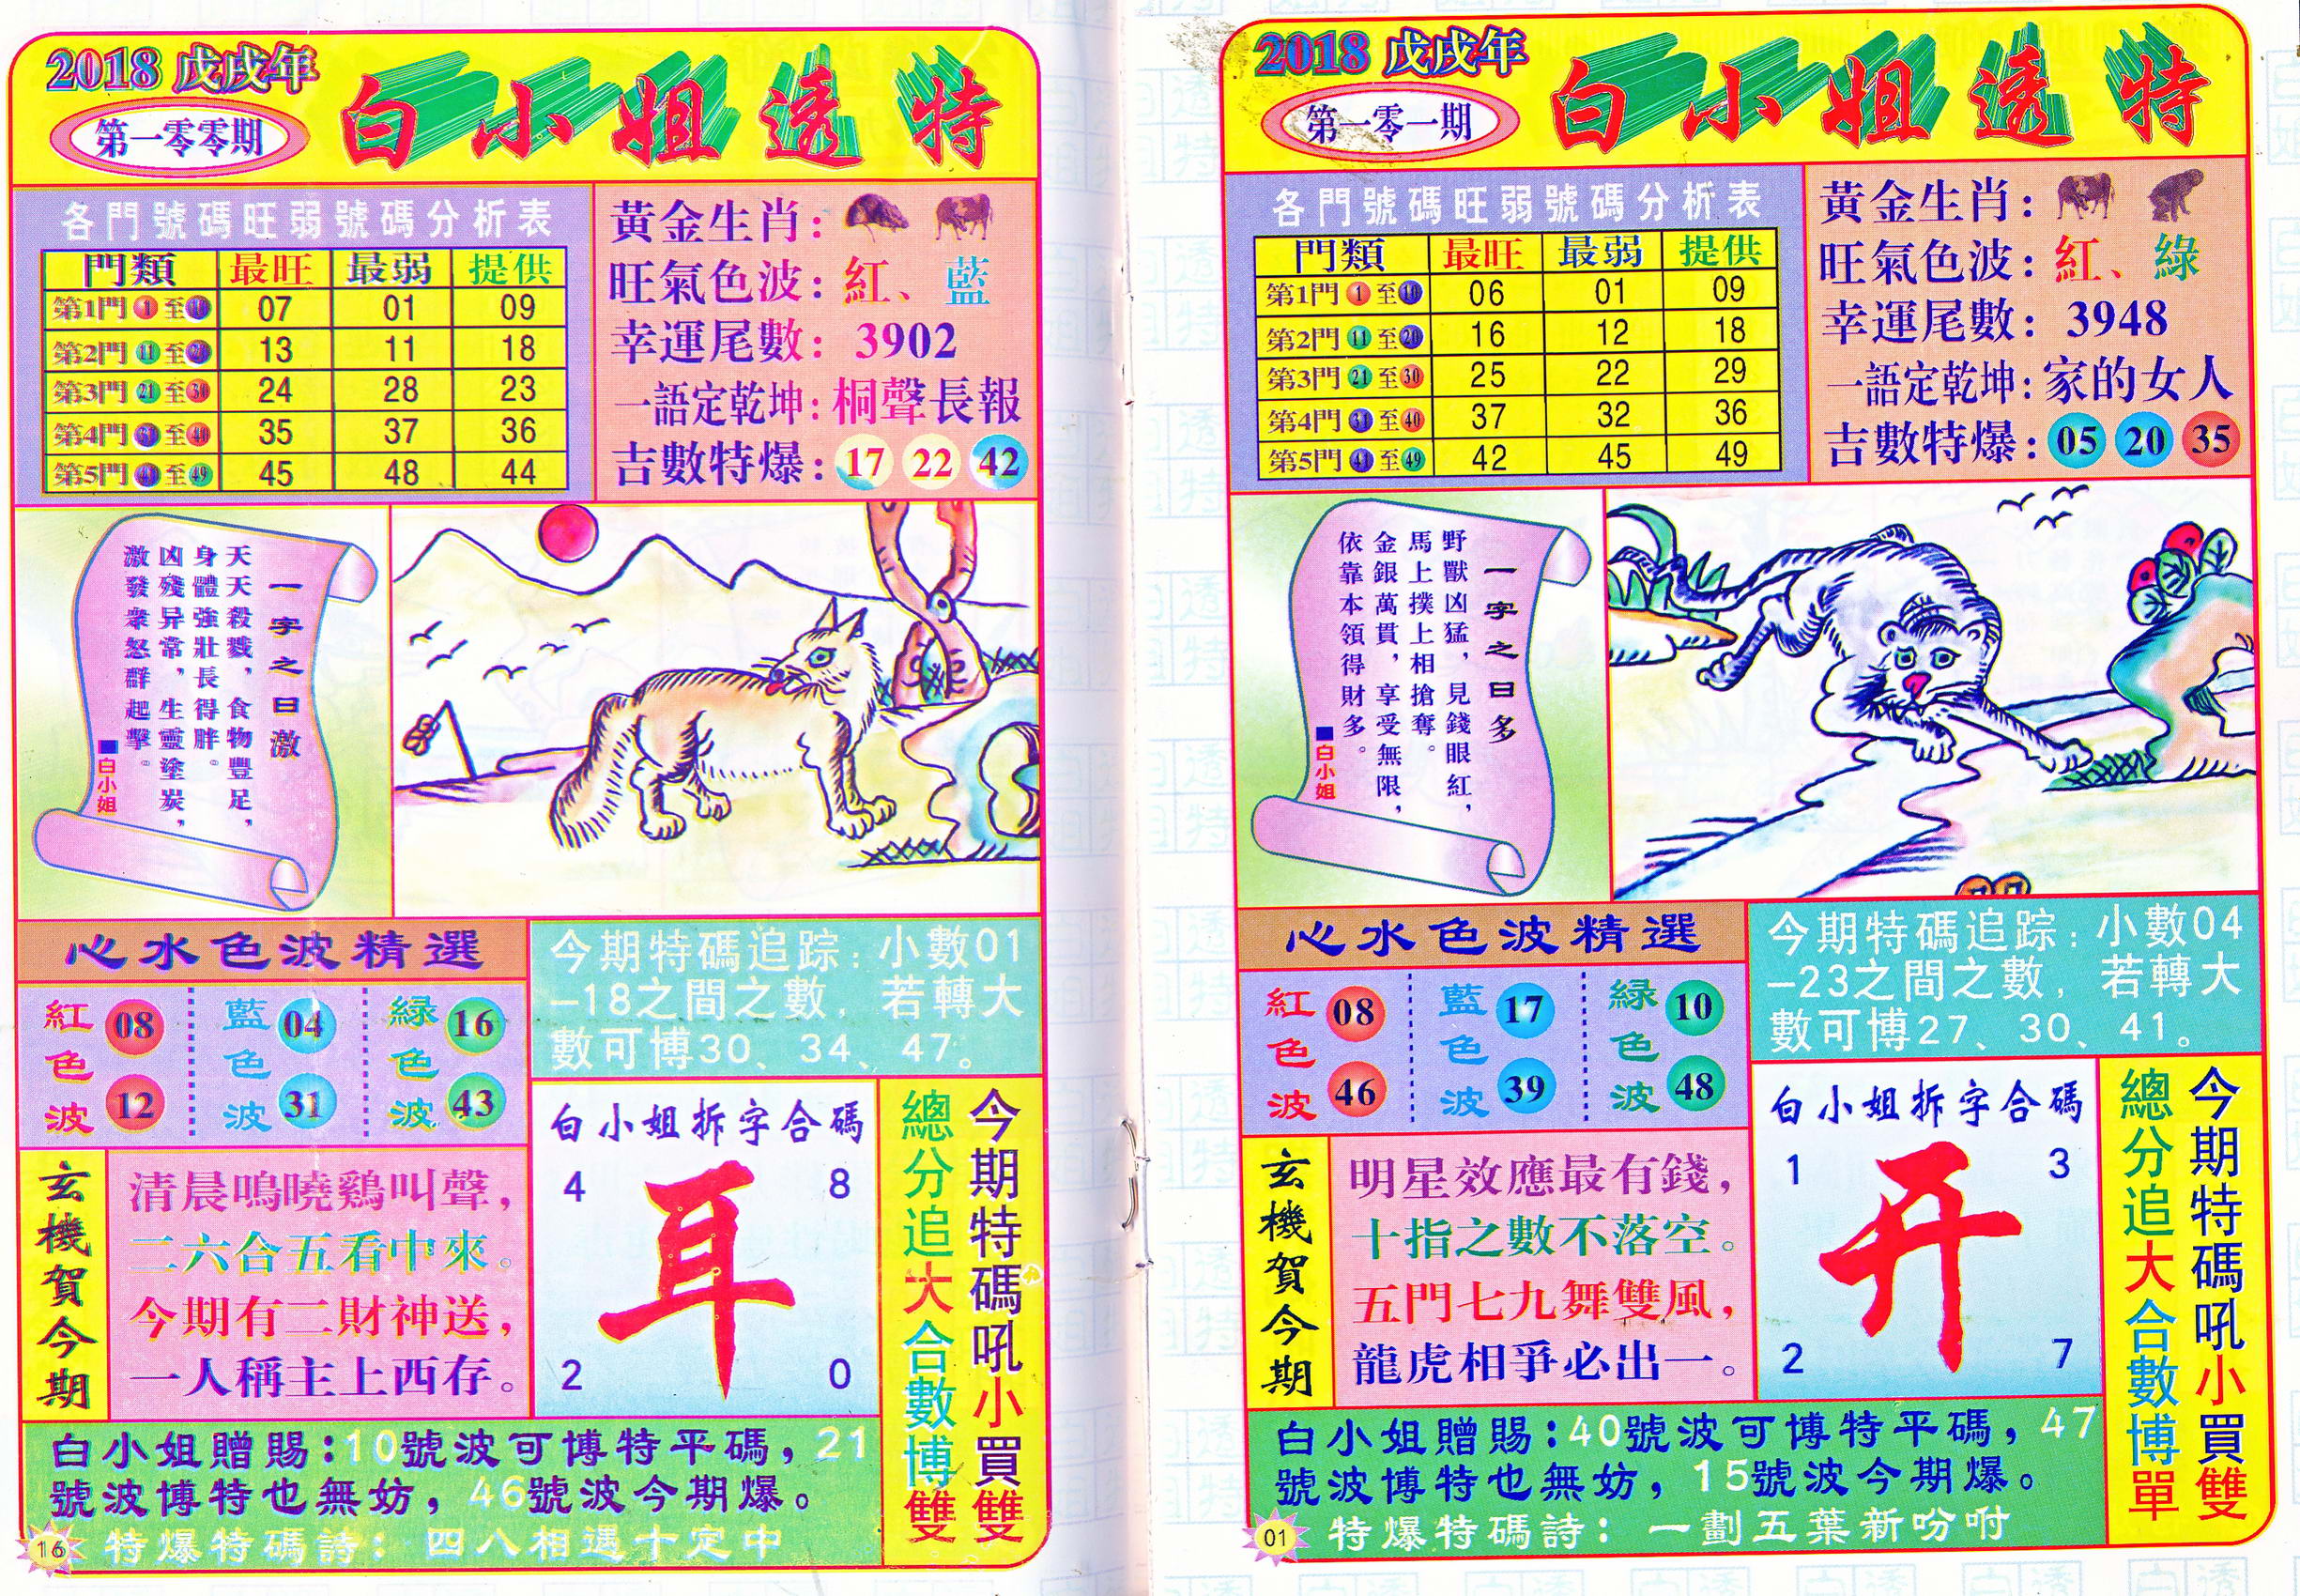 2018 戊戌年
第一零零期
白小姐透特
各門號碼旺弱號碼分析表
門類 最旺 最弱 提供
第1門 1 至 10 07 01 09
第2門 11 至 20 13 11 18
第3門 21 至 30 24 28 23
第4門 31 至 40 35 37 36
第5門 41 至 49 45 48 44
黃金生肖：
旺氣色波：紅、藍
幸運尾數：3902
一語定乾坤：桐聲長報
吉數特爆：17 22 42
一字之曰激
天天殺戮，食物豐足，
身體強壯長得胖。
凶殘异常，生靈塗炭，
激發衆怒群起擊。
■白小姐
心水色波精選
紅色波 08 12
藍色波 04 31
緑色波 16 43
今期特碼追踪：小數01
—18之間之數，若轉大
數可博30、34、47。
玄機賀今期
清晨鳴曉鷄叫聲，
二六合五看中來。
今期有二財神送，
一人稱主上西存。
白小姐拆字合碼
4 8
耳
2 0
今期特碼吼小買雙
總分追大合數博雙
白小姐贈賜：10號波可博特平碼，21
號波博特也無妨，46號波今期爆。
特爆特碼詩：四八相遇十定中
16
2018 戊戌年
第一零一期
白小姐透特
各門號碼旺弱號碼分析表
門類 最旺 最弱 提供
第1門 1 至 10 06 01 09
第2門 11 至 20 16 12 18
第3門 21 至 30 25 22 29
第4門 31 至 40 37 32 36
第5門 41 至 49 42 45 49
黃金生肖：
旺氣色波：紅、綠
幸運尾數：3948
一語定乾坤：家的女人
吉數特爆：05 20 35
一字之曰多
野獸凶猛，見錢眼紅，
馬上撲上相搶奪。
金銀萬貫，享受無限，
依靠本領得財多。
■白小姐
心水色波精選
紅色波 08 46
藍色波 17 39
緑色波 10 48
今期特碼追踪：小數04
—23之間之數，若轉大
數可博27、30、41。
玄機賀今期
明星效應最有錢，
十指之數不落空。
五門七九舞雙風，
龍虎相爭必出一。
白小姐拆字合碼
1 3
开
2 7
今期特碼吼小買雙
總分追大合數博單
白小姐贈賜：40號波可博特平碼，47
號波博特也無妨，15號波今期爆。
特爆特碼詩：一劃五葉新吩咐
01